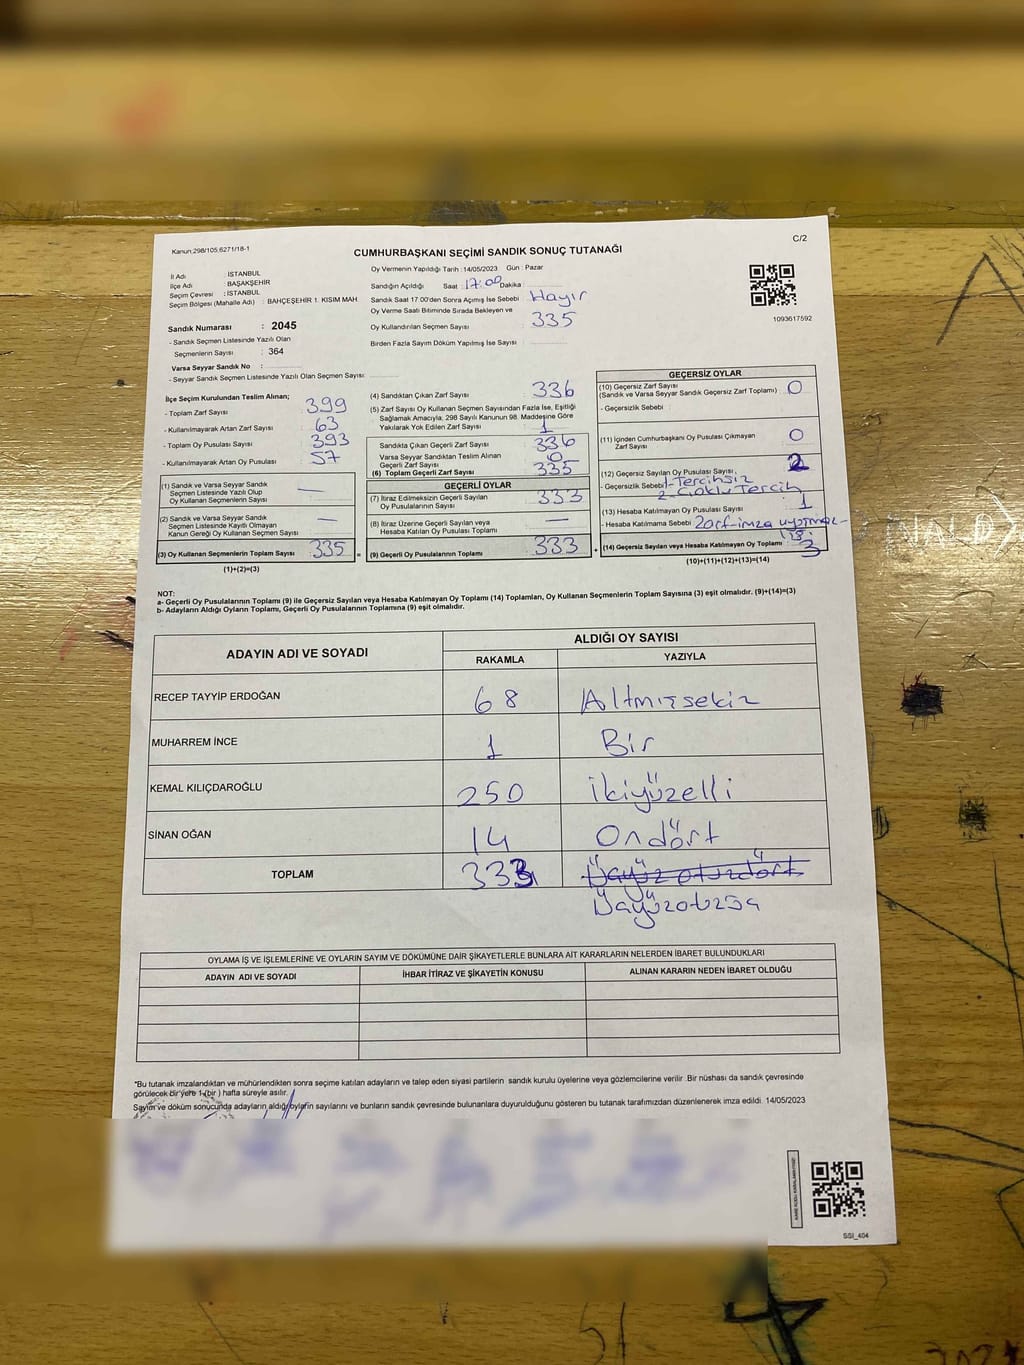 Kanun:298/105;6271/18-1
C/2
CUMHURBAŞKANI SEÇİMİ SANDIK SONUÇ TUTANAĞI
İl Adı : İSTANBUL
İlçe Adı : BAŞAKŞEHİR
Seçim Çevresi : İSTANBUL
Seçim Bölgesi (Mahalle Adı) : BAHÇEŞEHİR 1. KISIM MAH.
Sandık Numarası : 2045
- Sandık Seçmen Listesinde Yazılı Olan
Seçmenlerin Sayısı : 364
Varsa Seyyar Sandık No :
- Seyyar Sandık Seçmen Listesinde Yazılı Olan Seçmen Sayısı:
Oy Vermenin Yapıldığı Tarih : 14/05/2023 Gün : Pazar
Sandığın Açıldığı Saat : 17:00 Dakika :
Sandık Saat 17:00'den Sonra Açımış İse Sebebi : Hayır
Oy Verme Saati Bitiminde Sırada Bekleyen ve
Oy Kullandırılan Seçmen Sayısı : 335
Birden Fazla Sayım Döküm Yapılmış İse Sayısı :
1093617592
İlçe Seçim Kurulundan Teslim Alınan;
- Toplam Zarf Sayısı : 399
- Kullanılmayarak Artan Zarf Sayısı : 63
- Toplam Oy Pusulası Sayısı : 393
- Kullanılmayarak Artan Oy Pusulası : 57
(1) Sandık ve Varsa Seyyar Sandık
Seçmen Listesinde Yazılı Olup
Oy Kullanan Seçmenlerin Sayısı : —
(2) Sandık ve Varsa Seyyar Sandık
Seçmen Listesinde Kayıtlı Olmayan
Kanun Gereği Oy Kullanan Seçmen Sayısı : —
(3) Oy Kullanan Seçmenlerin Toplam Sayısı : 335 =
(1)+(2)=(3)
(4) Sandıktan Çıkan Zarf Sayısı : 336
(5) Zarf Sayısı Oy Kullanan Seçmen Sayısından Fazla İse, Eşitliği
Sağlamak Amacıyla, 298 Sayılı Kanunun 98. Maddesine Göre
Yakılarak Yok Edilen Zarf Sayısı : 1
Sandıkta Çıkan Geçerli Zarf Sayısı : 336
Varsa Seyyar Sandıktan Teslim Alınan
Geçerli Zarf Sayısı : 0
(6) Toplam Geçerli Zarf Sayısı : 335
GEÇERLİ OYLAR
(7) İtiraz Edilmeksizin Geçerli Sayılan
Oy Pusulalarının Sayısı : 333
(8) İtiraz Üzerine Geçerli Sayılan veya
Hesaba Katılan Oy Pusulası Toplamı : —
(9) Geçerli Oy Pusulalarının Toplamı : 333 +
GEÇERSİZ OYLAR
(10) Geçersiz Zarf Sayısı : 0
(Sandık ve Varsa Seyyar Sandık Geçersiz Zarf Toplamı)
- Geçersizlik Sebebi :
(11) İçinden Cumhurbaşkanı Oy Pusulası Çıkmayan
Zarf Sayısı : 0
(12) Geçersiz Sayılan Oy Pusulası Sayısı : 2
- Geçersizlik Sebebi : 1-Tercihsiz
2-Çoklu Tercih
(13) Hesaba Katılmayan Oy Pusulası Sayısı : 1
- Hesaba Katılmama Sebebi :
(14) Geçersiz Sayılan veya Hesaba Katılmayan Oy Toplamı : 3
(10)+(11)+(12)+(13)=(14)
NOT:
a- Geçerli Oy Pusulalarının Toplamı (9) ile Geçersiz Sayılan veya Hesaba Katılmayan Oy Toplamı (14) Toplamları, Oy Kullanan Seçmenlerin Toplam Sayısına (3) eşit olmalıdır. (9)+(14)=(3)
b- Adayların Aldığı Oyların Toplamı, Geçerli Oy Pusulalarının Toplamına (9) eşit olmalıdır.
ADAYIN ADI VE SOYADI
ALDIĞI OY SAYISI
RAKAMLA YAZIYLA
RECEP TAYYİP ERDOĞAN 68 Altmışsekiz
MUHARREM İNCE 1 Bir
KEMAL KILIÇDAROĞLU 250 İkiyüzelli
SİNAN OĞAN 14 Ondört
TOPLAM 333
OYLAMA İŞ VE İŞLEMLERİNE VE OYLARIN SAYIM VE DÖKÜMÜNE DAİR ŞİKAYETLERLE BUNLARA AİT KARARLARIN NELERDEN İBARET BULUNDUKLARI
ADAYIN ADI VE SOYADI İHBAR İTİRAZ VE ŞİKAYETİN KONUSU ALINAN KARARIN NEDEN İBARET OLDUĞU
*Bu tutanak imzalandıktan ve mühürlendikten sonra seçime katılan adayların ve talep eden siyasi partilerin sandık kurulu üyelerine veya gözlemcilerine verilir. Bir nüshası da sandık çevresinde
görülecek bir yere 1 (bir) hafta süreyle asılır.
Sayım ve döküm sonucunda adayların aldığı oyların sayılarını ve bunların sandık çevresinde bulunanlara duyurulduğunu gösteren bu tutanak tarafımızdan düzenlenerek imza edildi. 14/05/2023
SSI_404